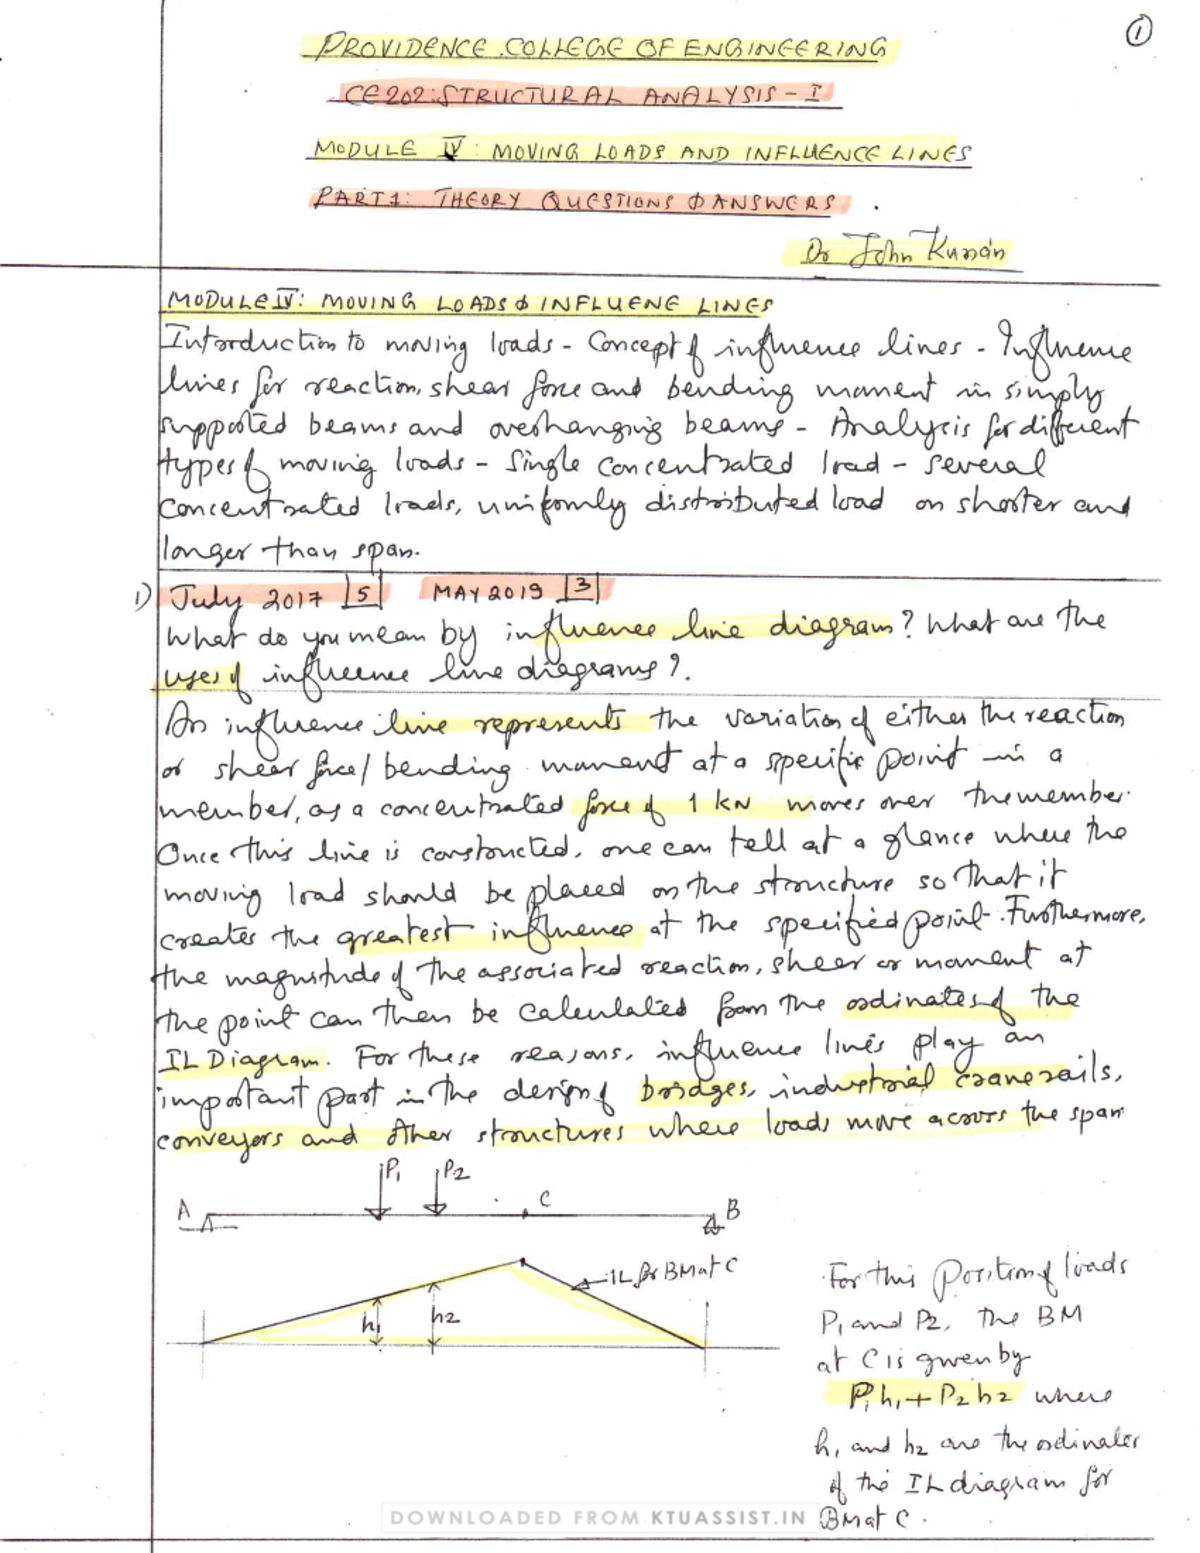 1
PROVIDENCE COLLEGE OF ENGINEERING
CE202: STRUCTURAL ANALYSIS - I
MODULE IV: MOVING LOADS AND INFLUENCE LINES
PART 1: THEORY QUESTIONS & ANSWERS.
Dr John Kurian
MODULE IV: MOVING LOADS & INFLUENE LINES
Introduction to moving loads - Concept of influence lines - Influence
lines for reaction, shear force and bending moment in simply
supported beams and overhanging beams - Analysis for different
types of moving loads - Single concentrated load - several
concentrated loads, uniformly distributed load on shorter and
longer than span.
1) July 2017 5 MAY 2019 3
What do you mean by influence line diagram? What are the
uses of influence line diagrams?.
An influence line represents the variation of either the reaction
or shear force/bending moment at a specific point in a
member, as a concentrated force of 1 kN moves over the member.
Once this line is constructed, one can tell at a glance where the
moving load should be placed on the structure so that it
creates the greatest influence at the specified point. Furthermore,
the magnitude of the associated reaction, shear or moment at
the point can then be calculated from the ordinates of the
IL Diagram. For these reasons, influence lines play an
important part in the design of bridges, industrial crane rails,
conveyors and other structures where loads move across the span
P1 P2
A C B
IL for BM at C
h1 h2
For this position of loads
P1 and P2, the BM
at C is given by
P1h1 + P2h2 where
h1 and h2 are the ordinates
of the IL diagram for
BM at C.
DOWNLOADED FROM KTUASSIST.IN